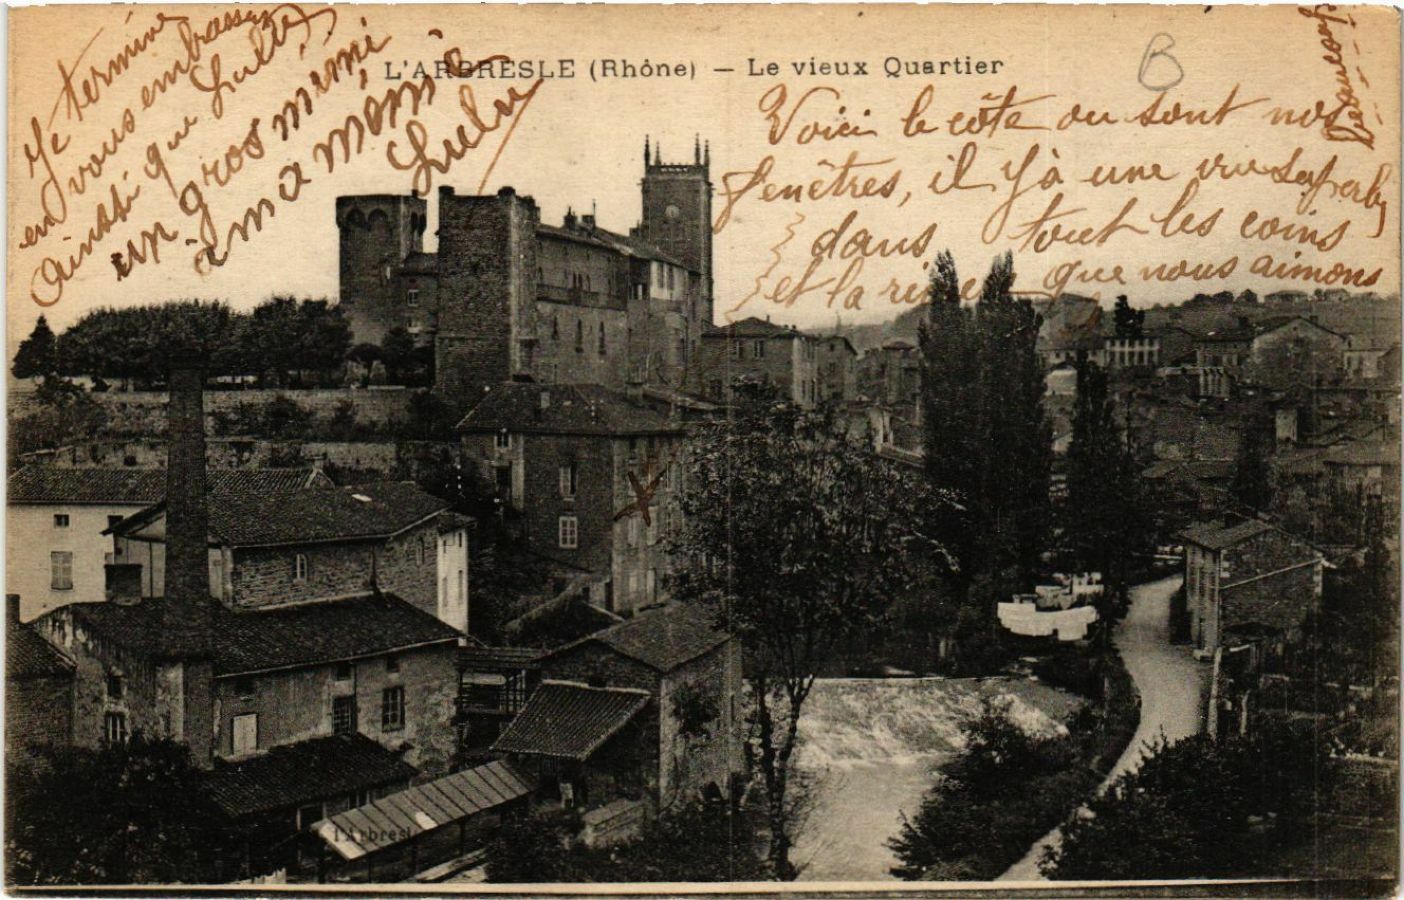 L'ARBRESLE (Rhône) — Le vieux Quartier
B
Je termine
en vous embrassant
Ainssi que Lulu
un gros mimi
à ma mémé
Lulu
Voici le côte ou sont nos
fenêtres, il y a une vu Superbe
dans tout les coins
et la rivier que nous aimons
Beaucoup
l'Arbresl